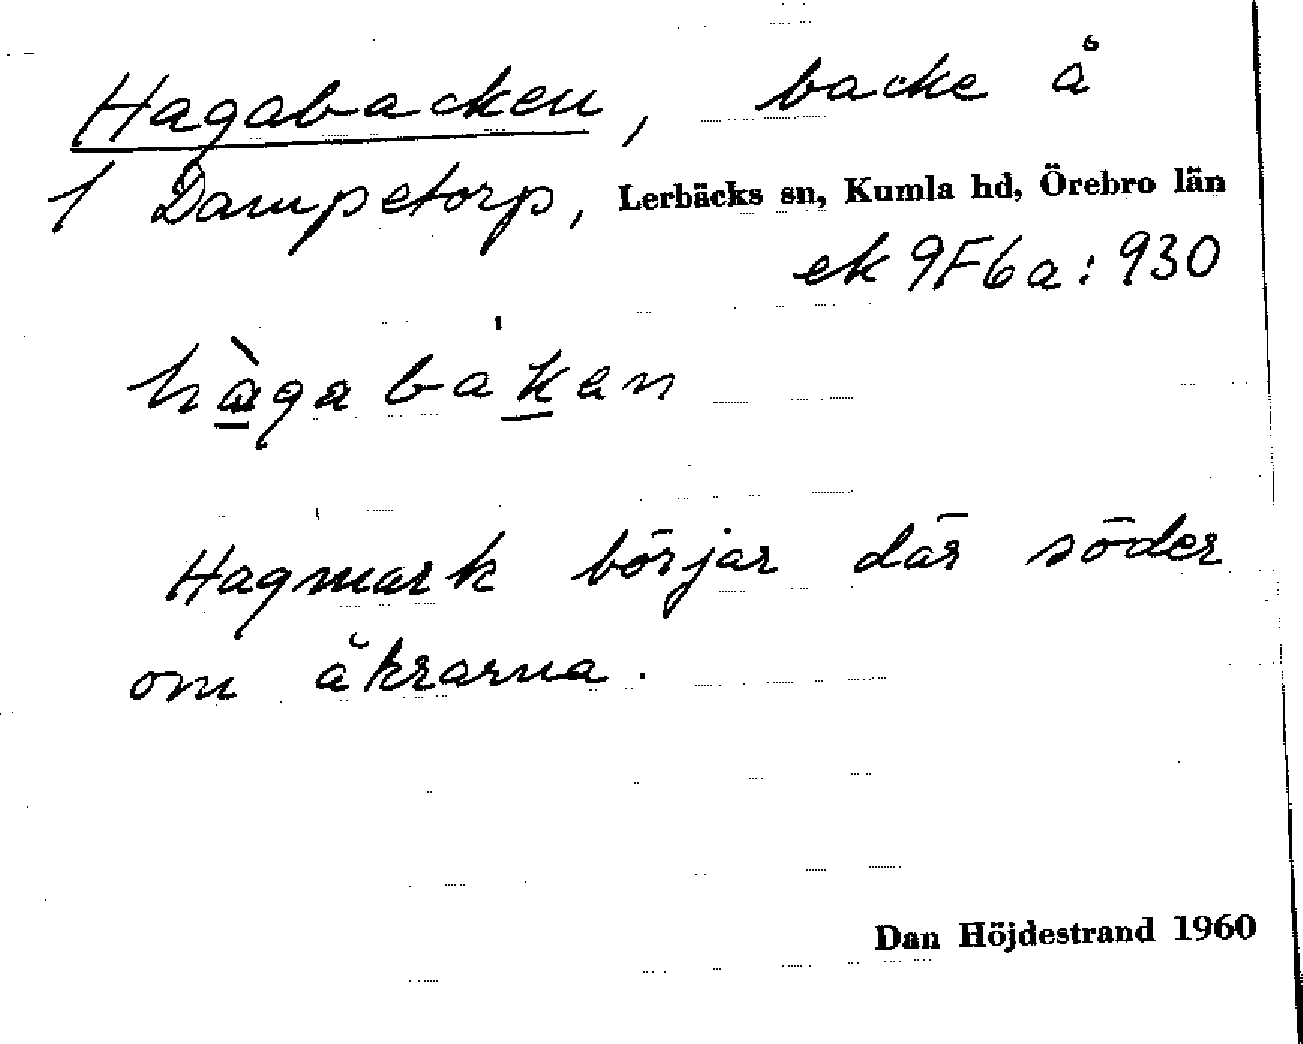 Hagabacken, backe å
1 Dampetorp, Lerbäcks sn, Kumla hd, Örebro län
ek 9F6a:930
hàgabaˈkan
Hagmark börjar där söder
om åkrarna.
Dan Höjdestrand 1960